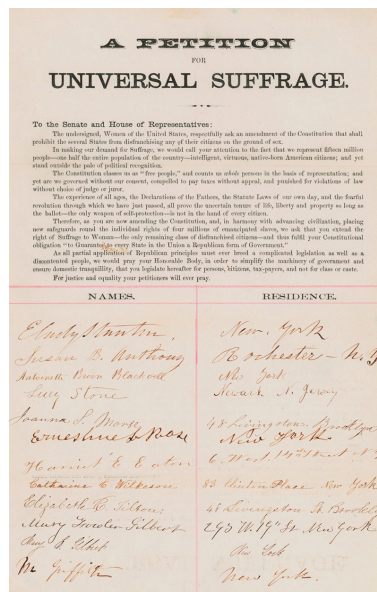 A PETITION
FOR
UNIVERSAL SUFFRAGE.
To the Senate and House of Representatives:
The undersigned, Women of the United States, respectfully ask an amendment of the Constitution that shall
prohibit the several States from disfranchising any of their citizens on the ground of sex.
In making our demand for Suffrage, we would call your attention to the fact that we represent fifteen million
people—one half the entire population of the country—intelligent, virtuous, native-born American citizens; and yet
stand outside the pale of political recognition.
The Constitution classes us as "free people," and counts us whole persons in the basis of representation; and
yet are we governed without our consent, compelled to pay taxes without appeal, and punished for violations of law
without choice of judge or juror.
The experience of all ages, the Declarations of the Fathers, the Statute Laws of our own day, and the fearful
revolution through which we have just passed, all prove the uncertain tenure of life, liberty and property so long as
the ballot—the only weapon of self-protection—is not in the hand of every citizen.
Therefore, as you are now amending the Constitution, and, in harmony with advancing civilization, placing
new safeguards round the individual rights of four millions of emancipated slaves, we ask that you extend the
right of Suffrage to Woman—the only remaining class of disfranchised citizens—and thus fulfil your Constitutional
obligation "to Guarantee to every State in the Union a Republican form of Government."
As all partial application of Republican principles must ever breed a complicated legislation as well as a
discontented people, we would pray your Honorable Body, in order to simplify the machinery of government and
ensure domestic tranquillity, that you legislate hereafter for persons, citizens, tax-payers, and not for class or caste.
For justice and equality your petitioners will ever pray.
NAMES. RESIDENCE.
E Cady Stanton, New York
Susan B. Anthony Rochester - N.Y
Antoinette Brown Blackwell New York
Lucy Stone Newark N. Jersey
Joanna S. Morse 48 Livingston. Brooklyn
Ernestine L Rose New York
Harriet E Eaton 6. West. 14th Street N.Y
Catharine C Wilkeson 83 Clinton Place New York
Elizabeth R. Tilton 48 Livingston St. Brooklyn
Mary Fowler Gilbert 293 W. 19th St New York
Gilbert New York
M Griffith New York.